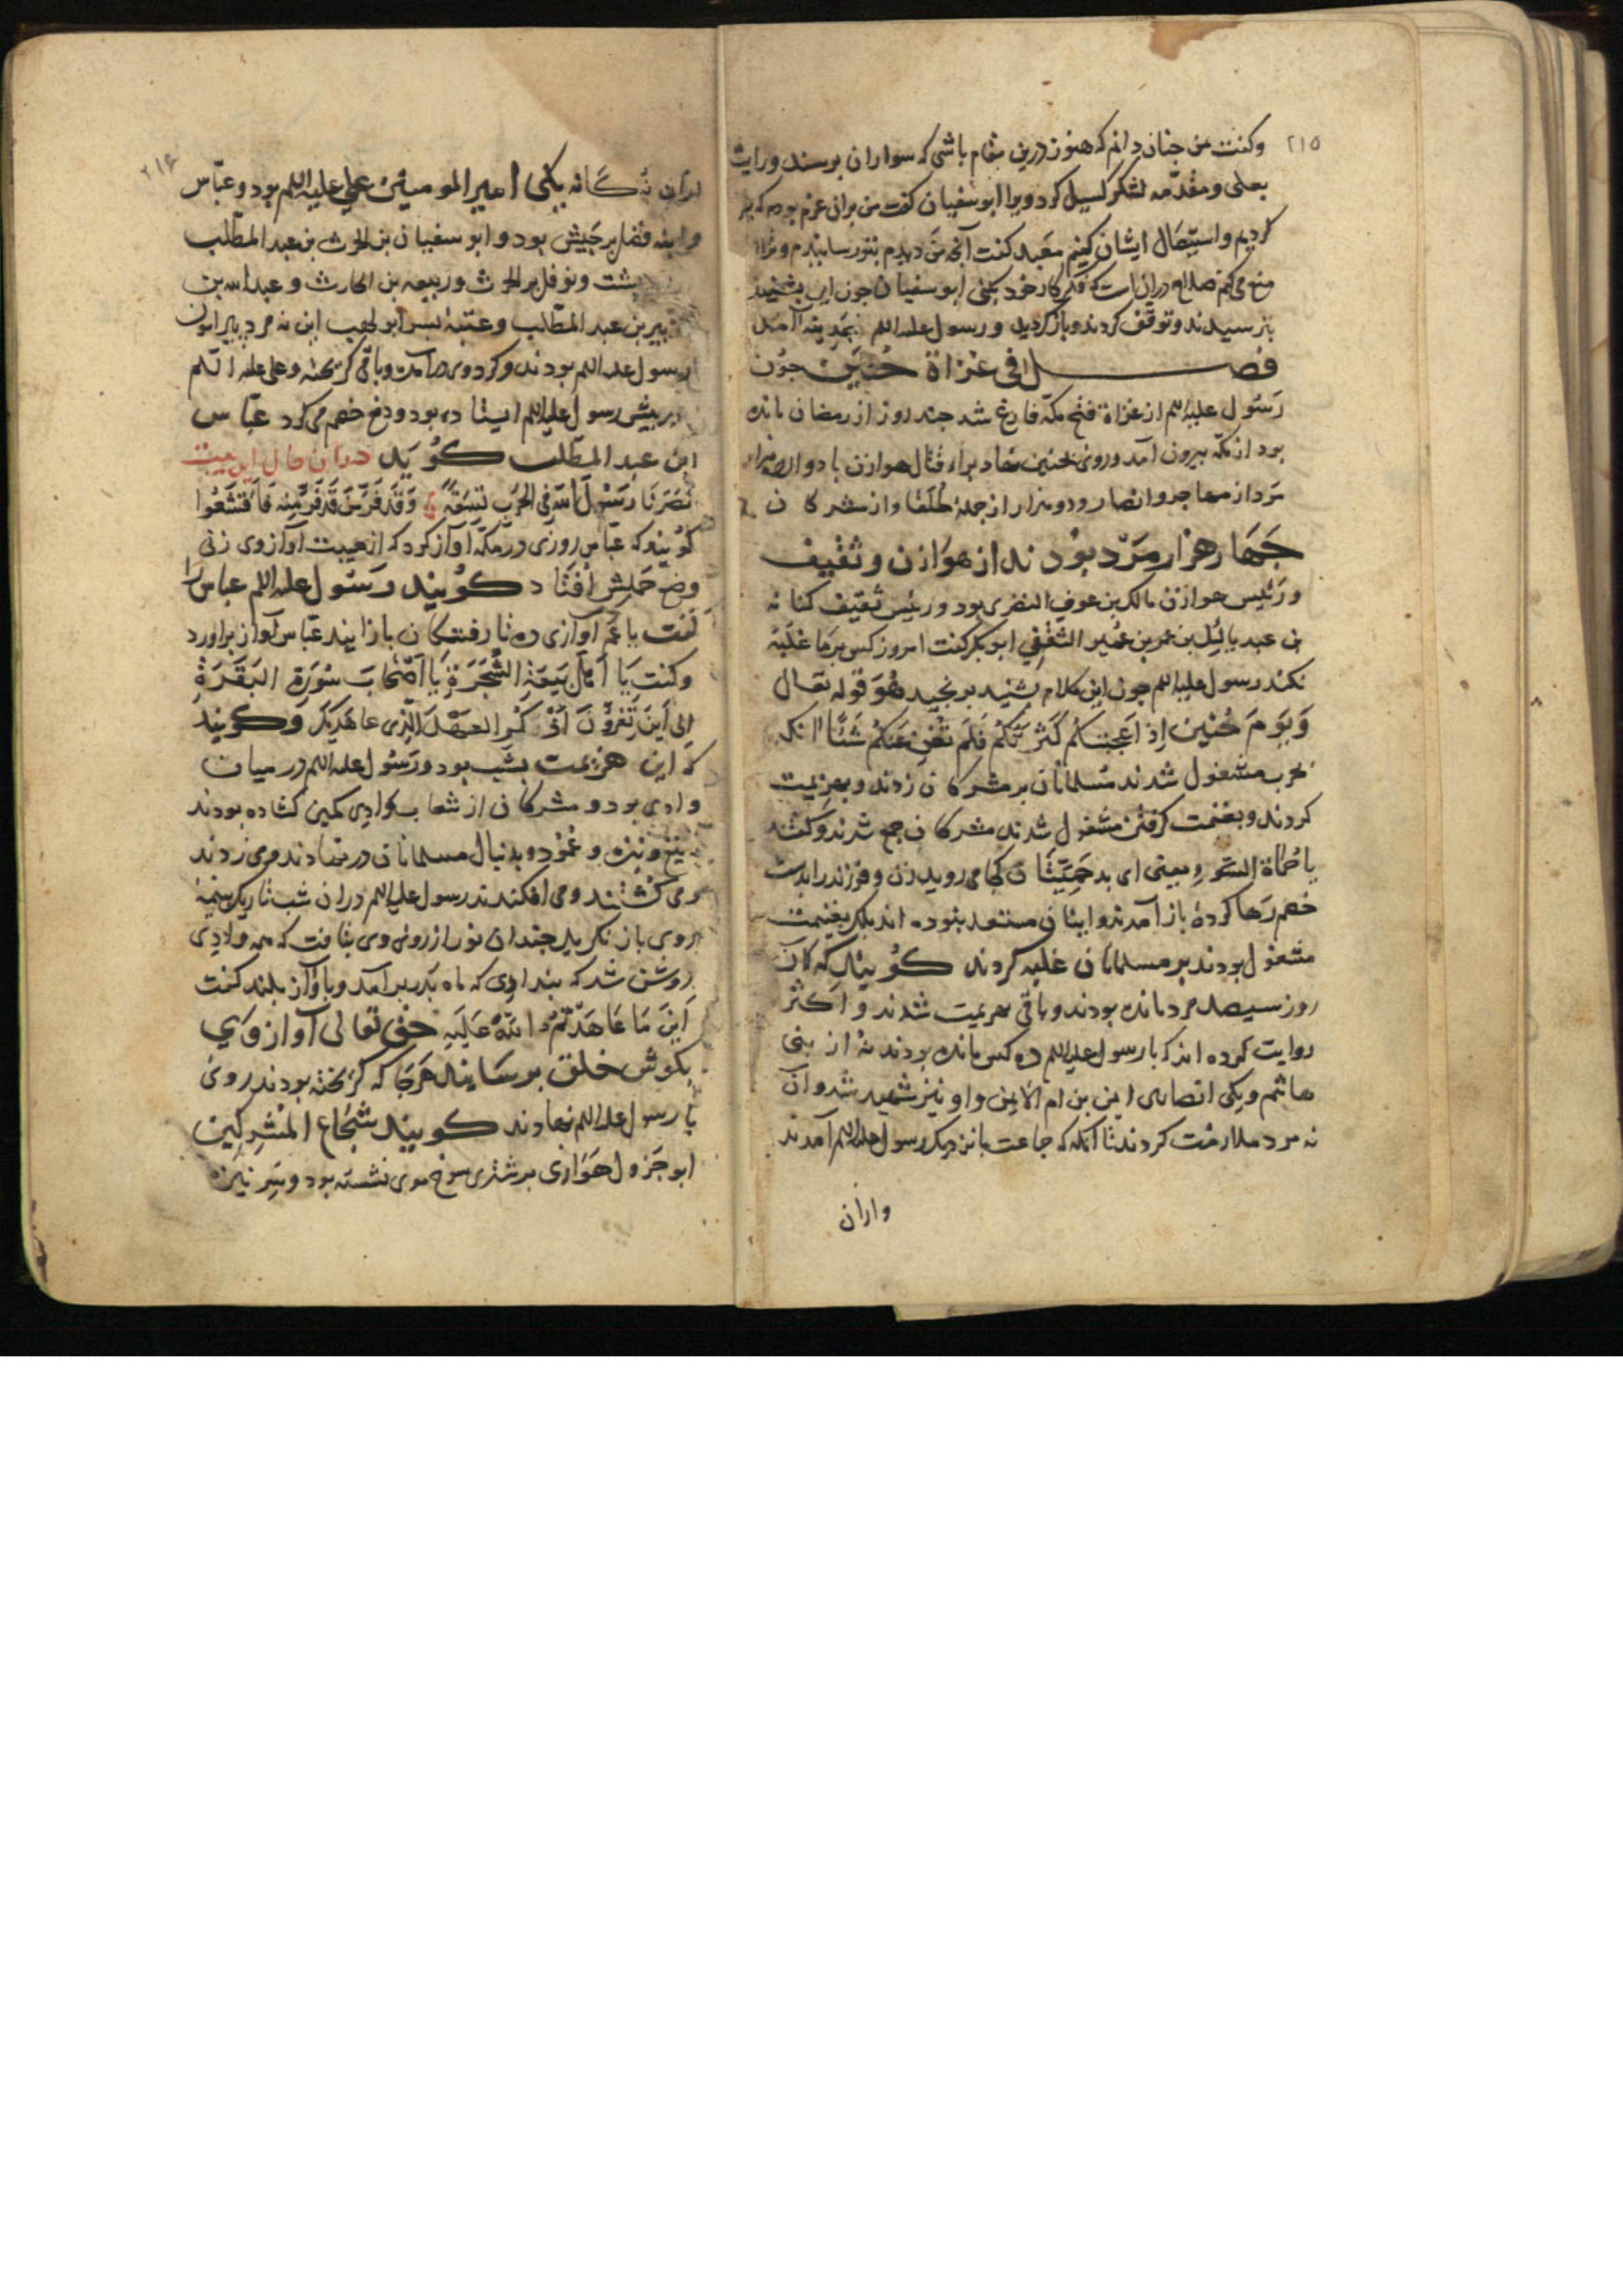 ۲۱۵
وکفت من جنان دانم که هنوز درین مقام باشی که سواران برسند و رایت
بعلی و مقدّمه لشکر کسیل کرد ویرا ابو سفیان کفت من بران عزم بودم که
کردیم و استیصال ایشان کنیم معبد کفت آنچه من دیدم بتو رسانیدم و ترا
منع می کنم صلاح دران است که فکر کار خود بکنی ابو سفیان جون این بشنید
بترسیدند و توقف کردند و باز کردید و رسول علیه السلم بمدینه آمد
فصل فی غزاة حُنَین جون
رسول علیه السلم از غزاة فتح مکّه فارغ شد جند روز از رمضان مانده
بود از مکّه بیرون آمد و روی بحنین نهاد برای قتال هوازن با دوازده هزار
مرد از مهاجر و انصار و دو هزار از جملهٔ طلقا و از مشرکان
جهار هزار مرد بودند از هوازن و ثقیف
و رئیس هوازن مالک بن عوف النضری بود و رئیس ثقیف کنانه
بن عبد یالیل بن عمر بن عمیر الثقفی ابو بکر کفت امروز کس بر ما غلبه
نکند رسول علیه السلم جون این کلام بشنید برنجید هُوَ قوله تعالی
وَیَومَ حُنَینٍ اِذ اَعجَبَتکُم کَثرَتُکُم فَلَم تُغنِ عَنکُم شَیئًا انکه
بحرب مشغول شدند مسلمانان بر مشرکان زدند و بهزیمت
کردند و بغنیمت کرفتن مشغول شدند مشرکان جمع شدند و کفتند
یا حُماة السَّوءِ یعنی ای بد حمیّتان کجا می روید زن و فرزند را بدست
خصم رها کرده باز آمدند و ایشان مستعد نبوده اند بلکه بغنیمت
مشغول بودند بر مسلمانان غلبه کردند کویند که آن
روز سیصد مرد مانده بودند و باقی بهزیمت شدند و اکثر
روایت کرده اند که با رسول علیه السلم ده کس مانده بودند نه از بنی
هاشم و یکی انصاری ایمن بن ام الایمن و او نیز شهید شد و آن
نه مرد ملازمت کردند تا آنکه که جماعت با نزدیک رسول علیه السلم آمدند
وازان
۲۱۶
ازان نه کانه یکی امیر المومنین علی علیه السلم بود و عبّاس
و ابنه فضل بر جیش بود و ابو سفیان بن الحرث بن عبد المطّلب
بشت و نوفل بن الحرث و ربیعه بن الحارث و عبد الله بن
زبیر بن عبد المطّلب و عتبهٔ بسر ابو لهب این نه مرد پیرامون
رسول علیه السلم بودند و کرد وی در آمده و باقی کریخته و علی علیه السلم
در پیش رسول علیه السلم ایستاده بود و دفع خصم می کرد عبّاس
ابن عبد المطّلب کوید دران حال این بیت
نَصَرنَا رَسُولَ اللهِ فِی الحَربِ تِسعَةً وَقَد فَرَّ مَن قَد فَرَّ مِنهُ فَاَقشَعُوا
کویند که عبّاس روزی در مکّه آواز کرد که از هیبت آواز وی زنی
وضع حملش افتاد کویند رسول علیه السلم عباس را
کفت یا عم آوازی ده تا رفتکان باز ایند عبّاس آواز براورد
وکفت یَا اَهلَ بَیعَةِ الشَّجَرَةِ یَا اَصحَابَ سُورَةِ البَقَرَةِ
اِلی اَینَ تَفِرُّونَ اُذکُر العَهدَ الَّذِی عاهَدَکُم و کویند
که این هزیمت بشب بود و رسول علیه السلم در میان
وادی بود و مشرکان از شعاب وادی کمین کشاده بودند
بتیغ و نیزه و عمود و بدنبال مسلمانان در نهادند و می زدند
و می کشتند و می افکندند رسول علیه السلم دران شب تاریک بنیمهٔ
روی باز نکرید جندان نور از روی وی بتافت که همه وادی
روشن شد که بنداری که ماه بدر بر آمد و بآواز بلند کفت
اَینَ مَا عَاهَدتُمُ اللهَ عَلَیهِ حق تعالی آواز وی
بکوش خلق برسانید هر جا که کریخته بودند روی
با رسول علیه السلم نهادند کویند شجاع المشرکین
ابو جرول هوازی بر شتری سرخ موی نشسته بود و سر نیزه